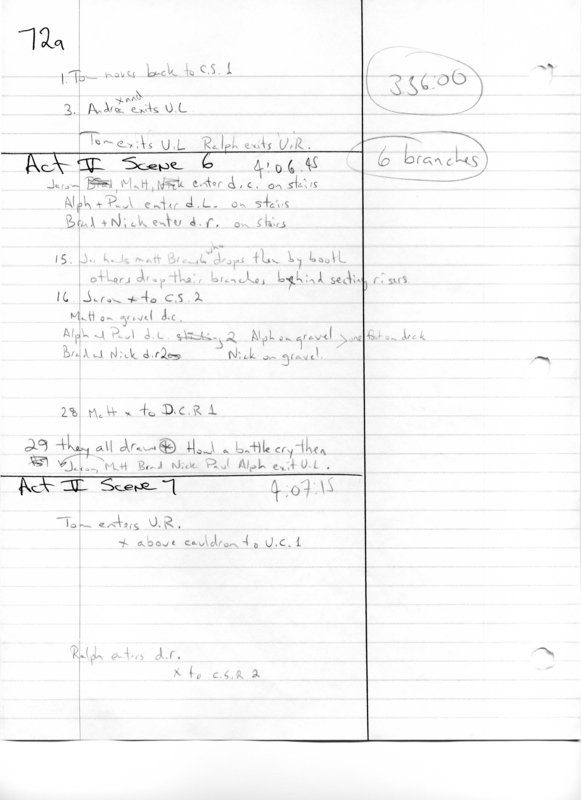 72a
1. Tom moves back to C.S. 1
336:00
x and
3. Andre exits U.L
Tom exits U.L Ralph exits U.R.
Act V Scene 6 4:06.45
6 branches
Jaron, Matt, Nick enter d.c. on stairs
Alph + Paul enter d.L. on stairs
Brad + Nick enter d.r. on stairs
15. Jar hands matt Branch who drops them by booth
others drop their branches behind seating risers
16 Jaron x to C.S. 2
Matt on gravel d.c.
Alph and Paul d.L. 2 Alph on gravel > one foot on deck
Brad and Nick d.r. 2 Nick on gravel
28 Matt x to D.C.R 1
29 they all draw + Howl a battle cry then
Jaron Matt Brad Nick Paul Alph exit U.L.
Act V Scene 7 4:07:15
Tom enters U.R.
x above cauldron to U.C. 1
Ralph enters d.r.
x to C.S.R 2